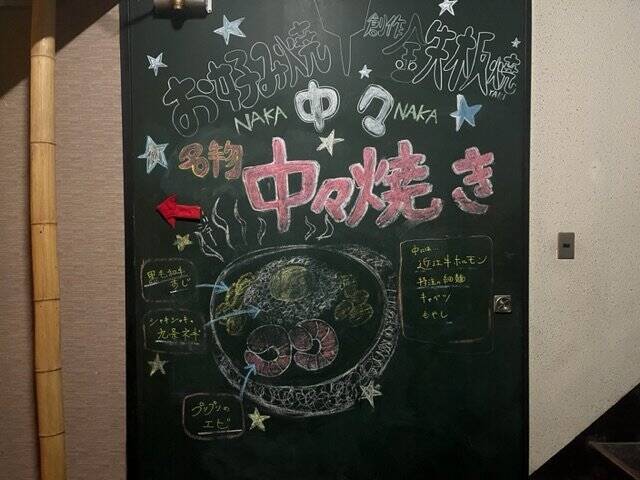 お好み焼
創作 鉄板焼
YAKI
NAKA 中々 NAKA
名物
中々焼き
黒毛和牛
すじ
シャキシャキの
九条ネギ
プリプリの
エビ
中には…
近江牛ホルモン
特注の細麺
キャベツ
もやし